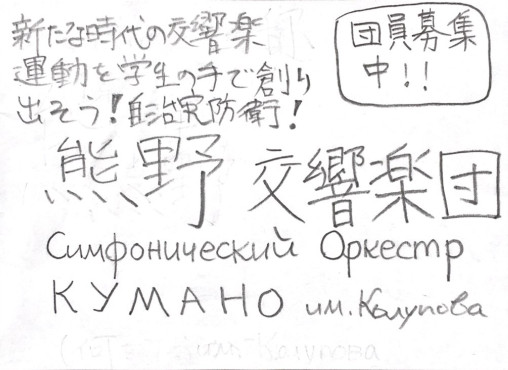 新たな時代の交響楽
運動を学生の手で創り
出そう!自治寮防衛!
団員募集
中!!
熊野 交響楽団
Симфонический Оркестр
КУМАНО им. Калупова